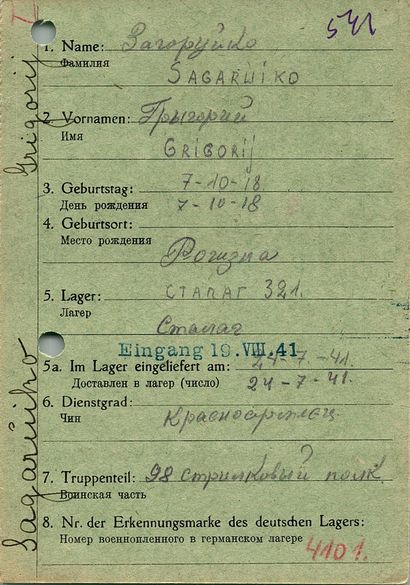 541
1. Name: Загоруйко
Фамилия
SAGARŬIKO
2. Vornamen: Грыгорий
Имя
GRIGORIJ
3. Geburtstag: 7-10-18
День рождения 7-10-18
4. Geburtsort:
Место рождения
Рогизна
5. Lager: СТАЛАГ 321.
Лагер
Сталаг
Eingang 19. VIII. 41
5a. Im Lager eingeliefert am: 24-7-41.
Доставлен в лагер (число) 24-7-41.
6. Dienstgrad:
Чин Красноармеец
7. Truppenteil: 98 стрилковый полк
Воинская часть
8. Nr. der Erkennungsmarke des deutschen Lagers:
Номер военнопленного в германском лагере 4101.
Sagarŭiko Grigorij